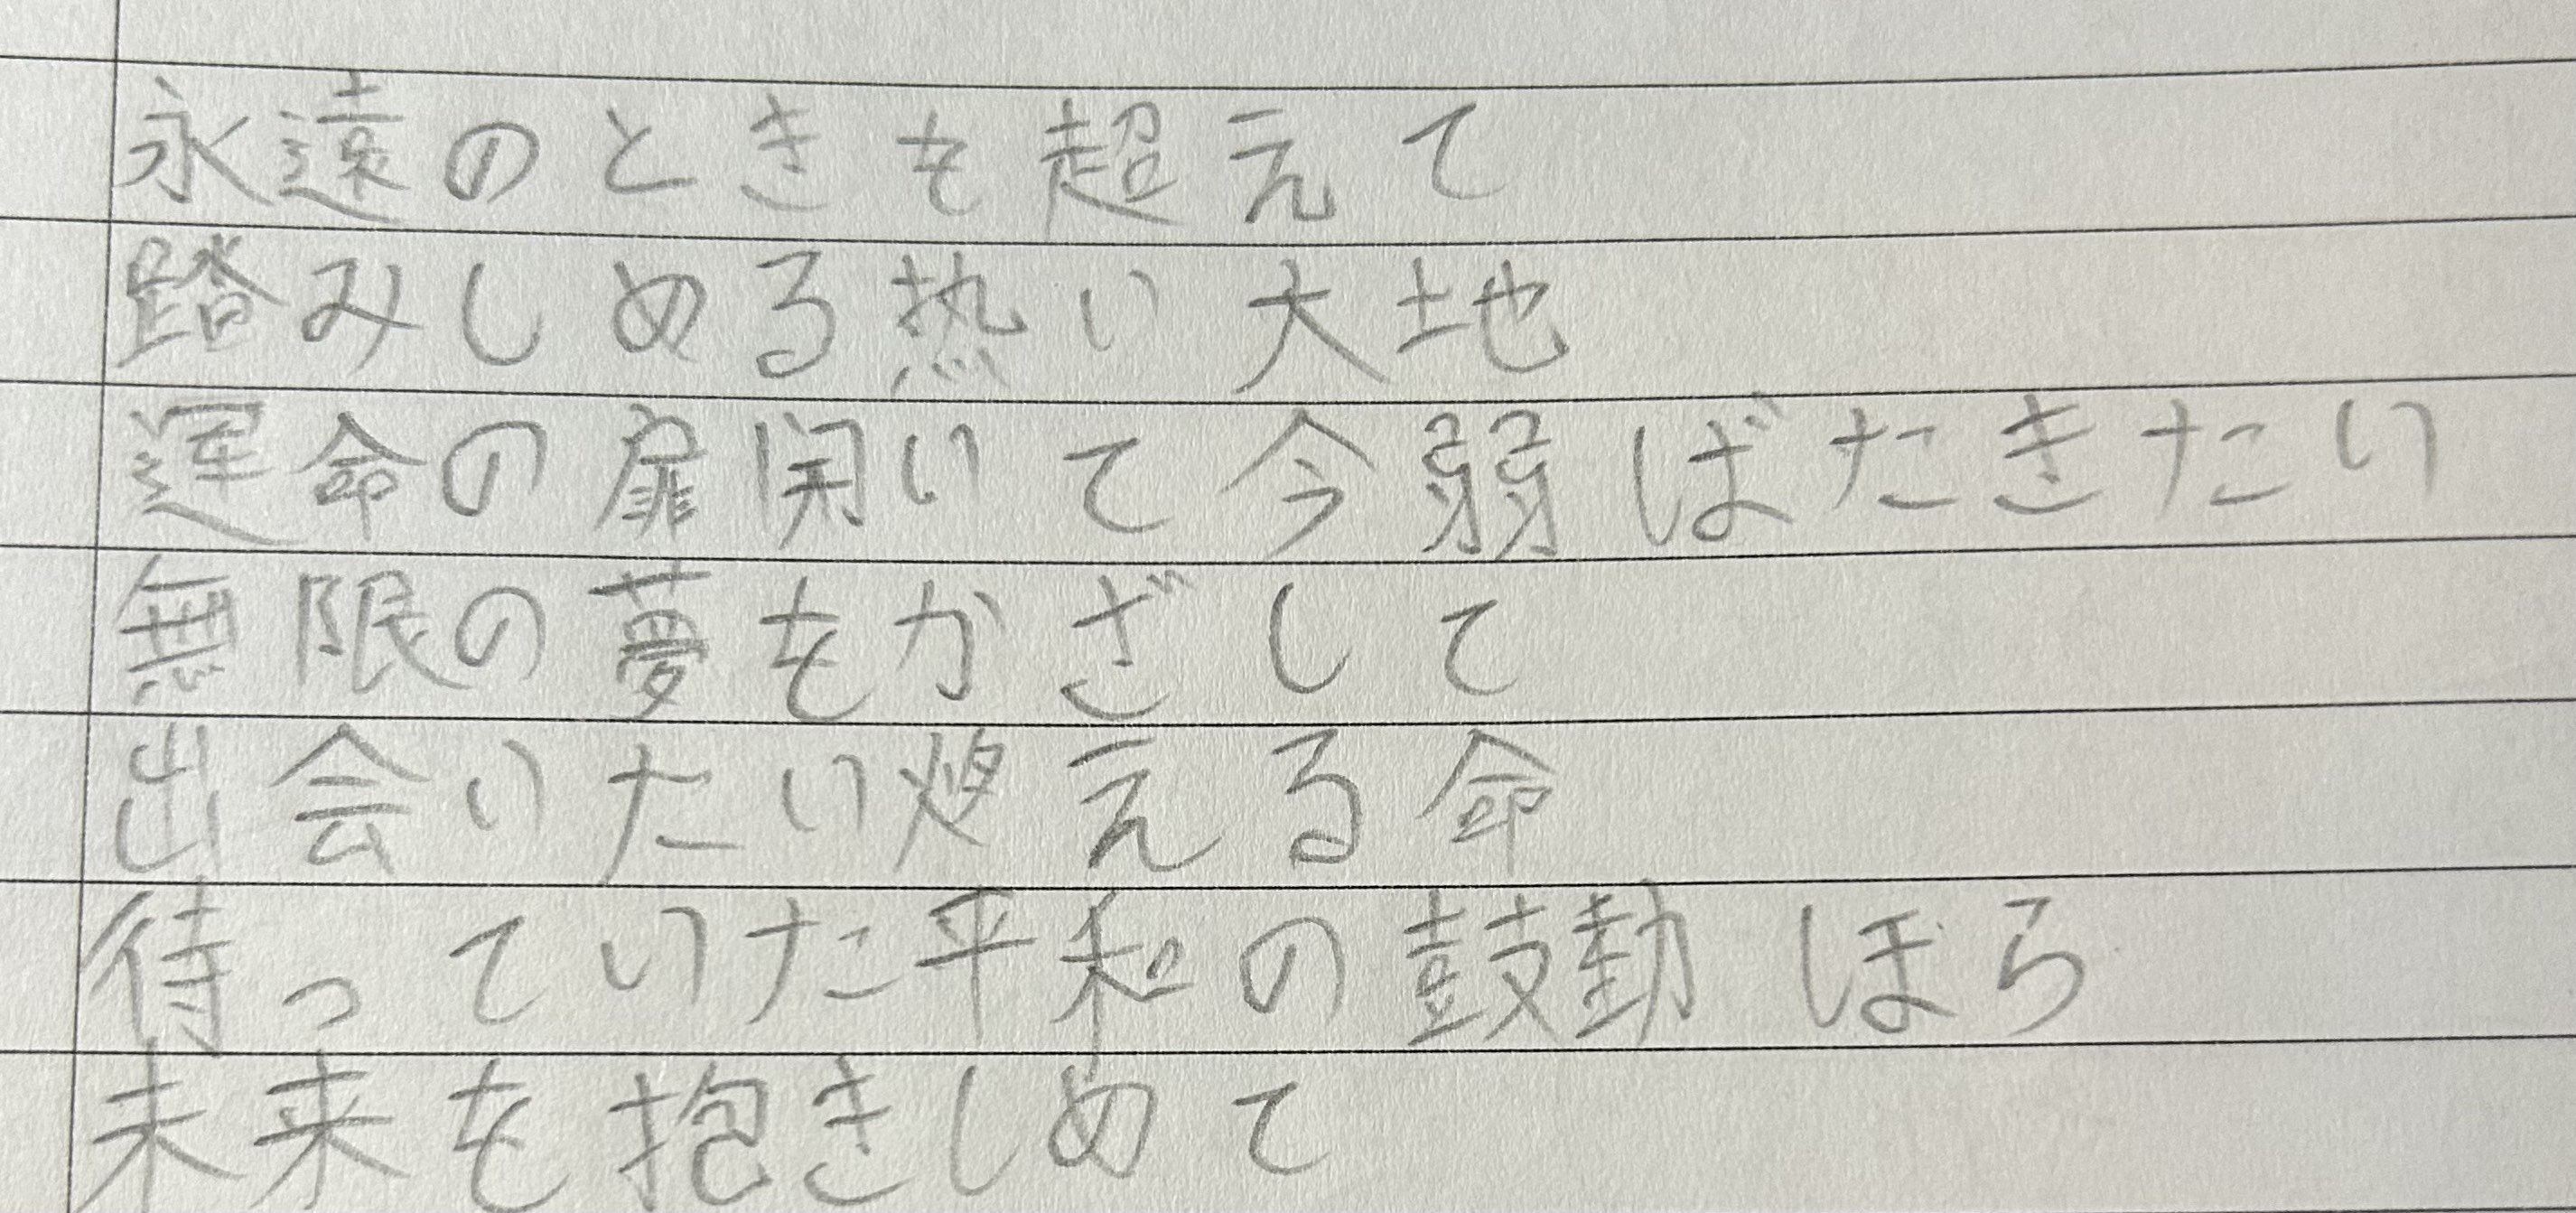 永遠のときも超えて
踏みしめる熱い大地
運命の扉開いて今弱ばたきたい
無限の夢をかざして
出会いたい燃える命
待っていた平和の鼓動 ほら
未来を抱きしめて